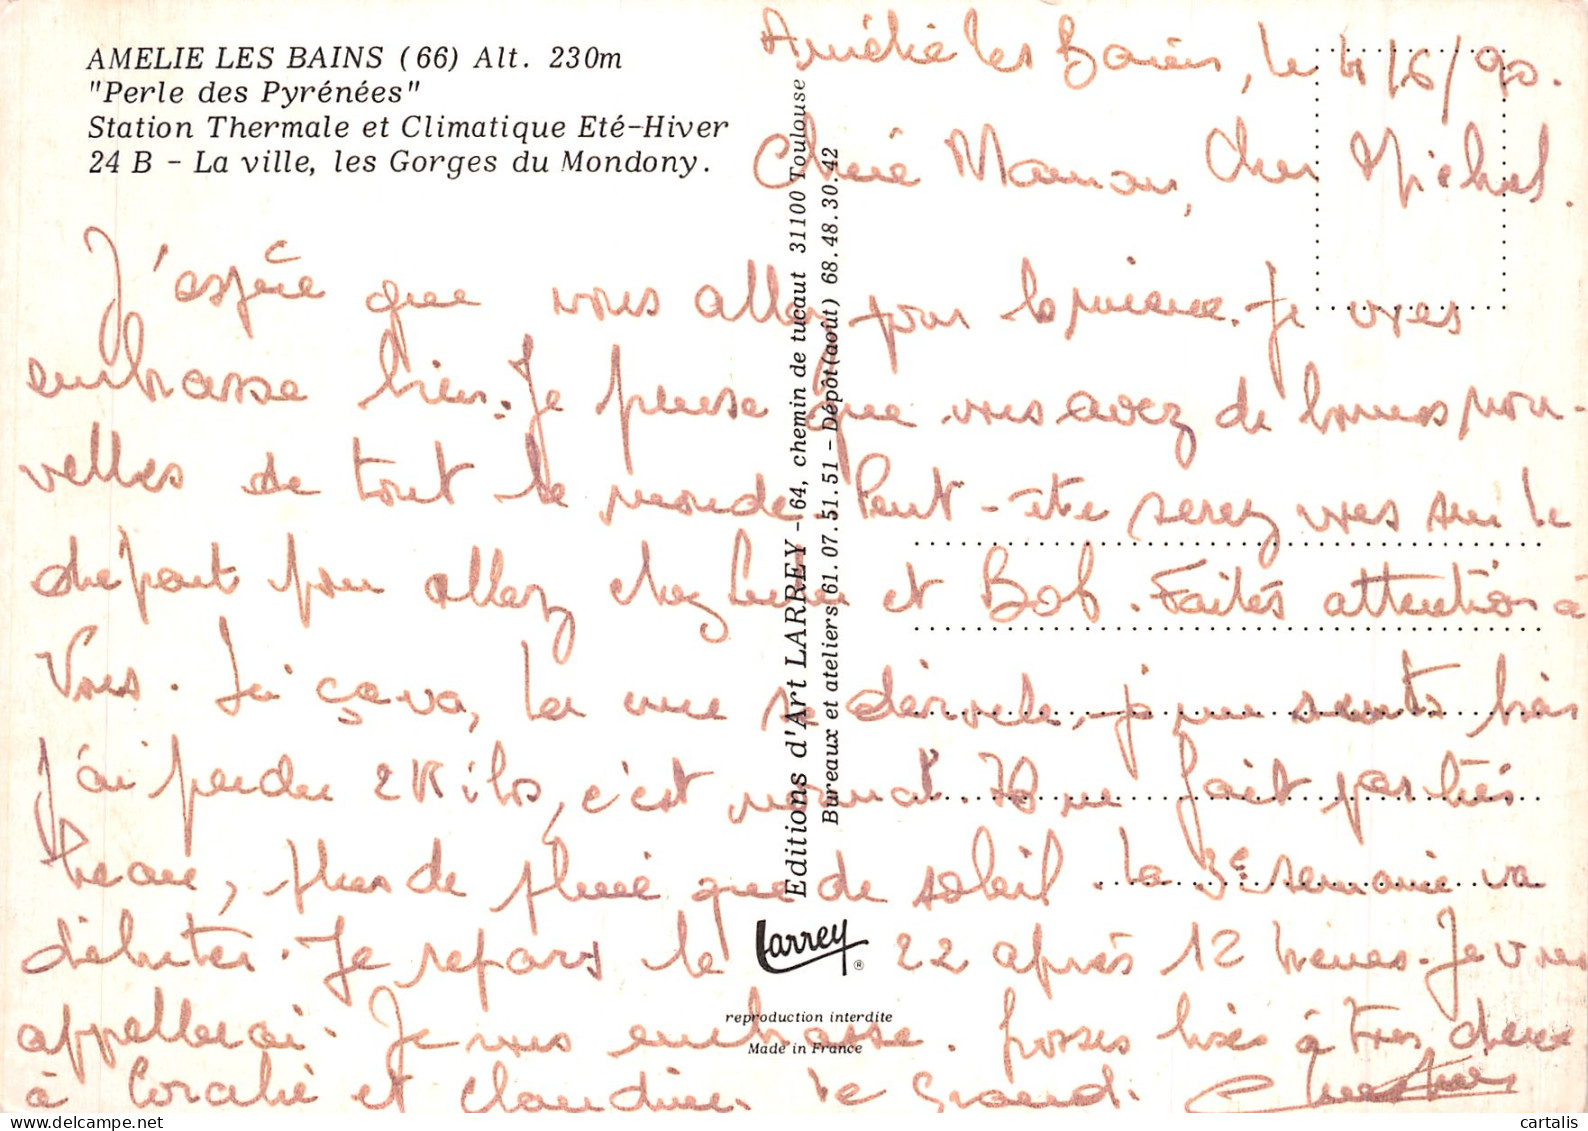 AMELIE LES BAINS (66) Alt. 230m
"Perle des Pyrénées"
Station Thermale et Climatique Eté-Hiver
24 B - La ville, les Gorges du Mondony.
Amélie les Bains, le 4/6/90.
Chère Maman, cher Michel.
J'espère que vous allez pour le mieux. Je vous
embrasse bien. Je pense que vous avez de bonnes nou-
velles de tout le monde. Peut-être serez vous sur le
départ pour allez chez et Bob. Faites attention à
Vous. Ici ça va, la cure se déroule, je me sents bien
j'ai perdu 2 Kilos, c'est normal. Il ne fait pas très
beau, plus de pluie que de soleil. La 3e semaine va
débuter. Je repars le 22 après 12 heures. Je vous
appellerai. Je vous embrasse. Grosses bises à tous deux
à Coralie et Claudine. le Grand.
Editions d'Art LARREY - 64, chemin de tucaut 31100 Toulouse
Bureaux et ateliers 61.07.51.51 - Dépôt (août) 68.48.30.42
Larrey ®
reproduction interdite
Made in France
cartalis